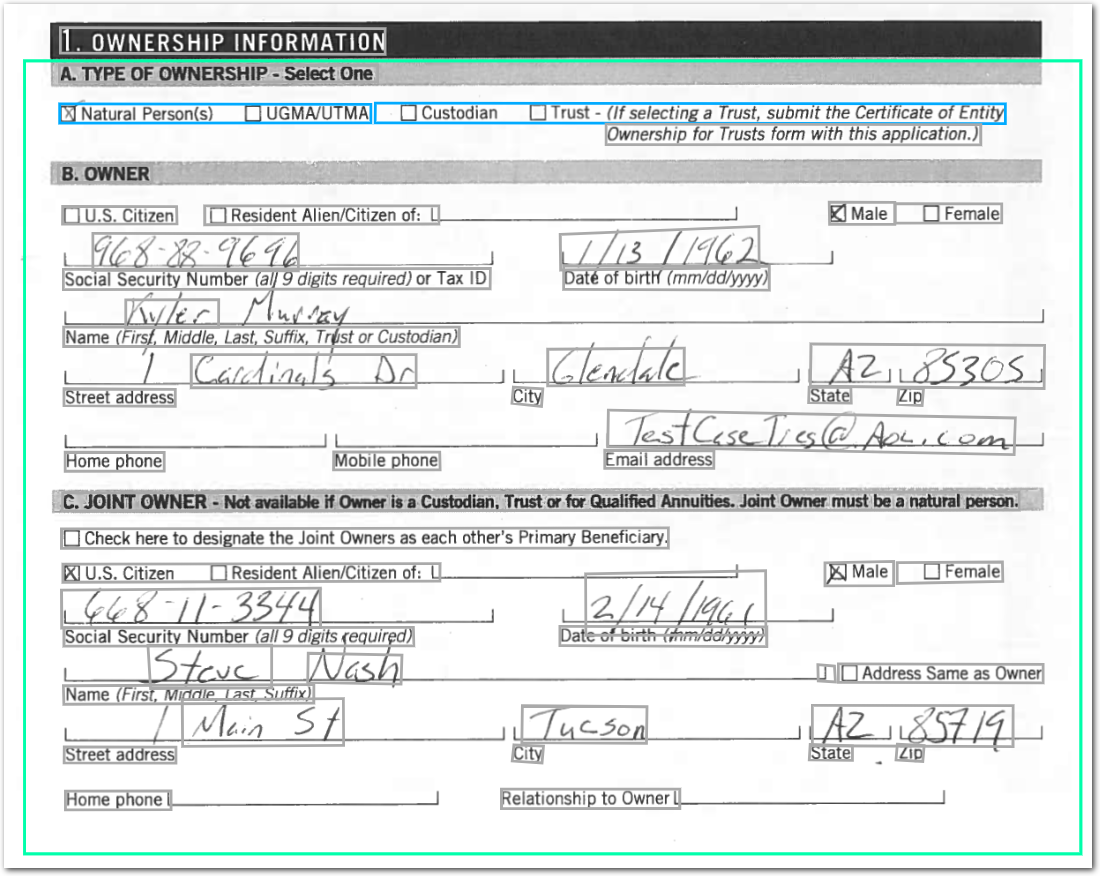 1. OWNERSHIP INFORMATION
A. TYPE OF OWNERSHIP - Select One
☒ Natural Person(s) ☐ UGMA/UTMA ☐ Custodian ☐ Trust - (If selecting a Trust, submit the Certificate of Entity
Ownership for Trusts form with this application.)
B. OWNER
☐ U.S. Citizen ☐ Resident Alien/Citizen of: ☒ Male ☐ Female
968-88-9696 1/13/1962
Social Security Number (all 9 digits required) or Tax ID Date of birth (mm/dd/yyyy)
Kyler Murray
Name (First, Middle, Last, Suffix, Trust or Custodian)
1 Cardinals Dr Glendale AZ 85305
Street address City State Zip
TestCaseTies@AOL.com
Home phone Mobile phone Email address
C. JOINT OWNER - Not available if Owner is a Custodian, Trust or for Qualified Annuities. Joint Owner must be a natural person.
☐ Check here to designate the Joint Owners as each other's Primary Beneficiary.
☒ U.S. Citizen ☐ Resident Alien/Citizen of: ☒ Male ☐ Female
668-11-3344 2/14/1961
Social Security Number (all 9 digits required) Date of birth (mm/dd/yyyy)
Steve Nash ☐ Address Same as Owner
Name (First, Middle, Last, Suffix)
1 Main St Tucson AZ 85719
Street address City State Zip
Home phone Relationship to Owner